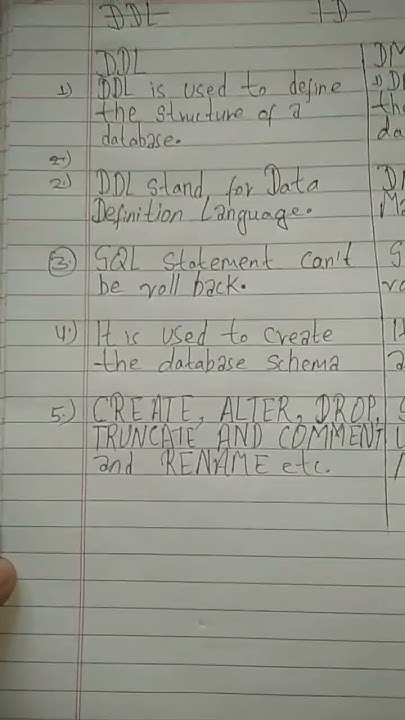 DDL
DDL
1) DDL is used to define
the structure of a
database.
2)
2.) DDL Stand, for Data
Definition Language.
3. SQL Statement can't
be roll back.
4.) It is used to create
the database schema
5.) CREATE, ALTER, DROP,
TRUNCATE AND COMMENT
and RENAME etc.
DM
1) DD
the
da